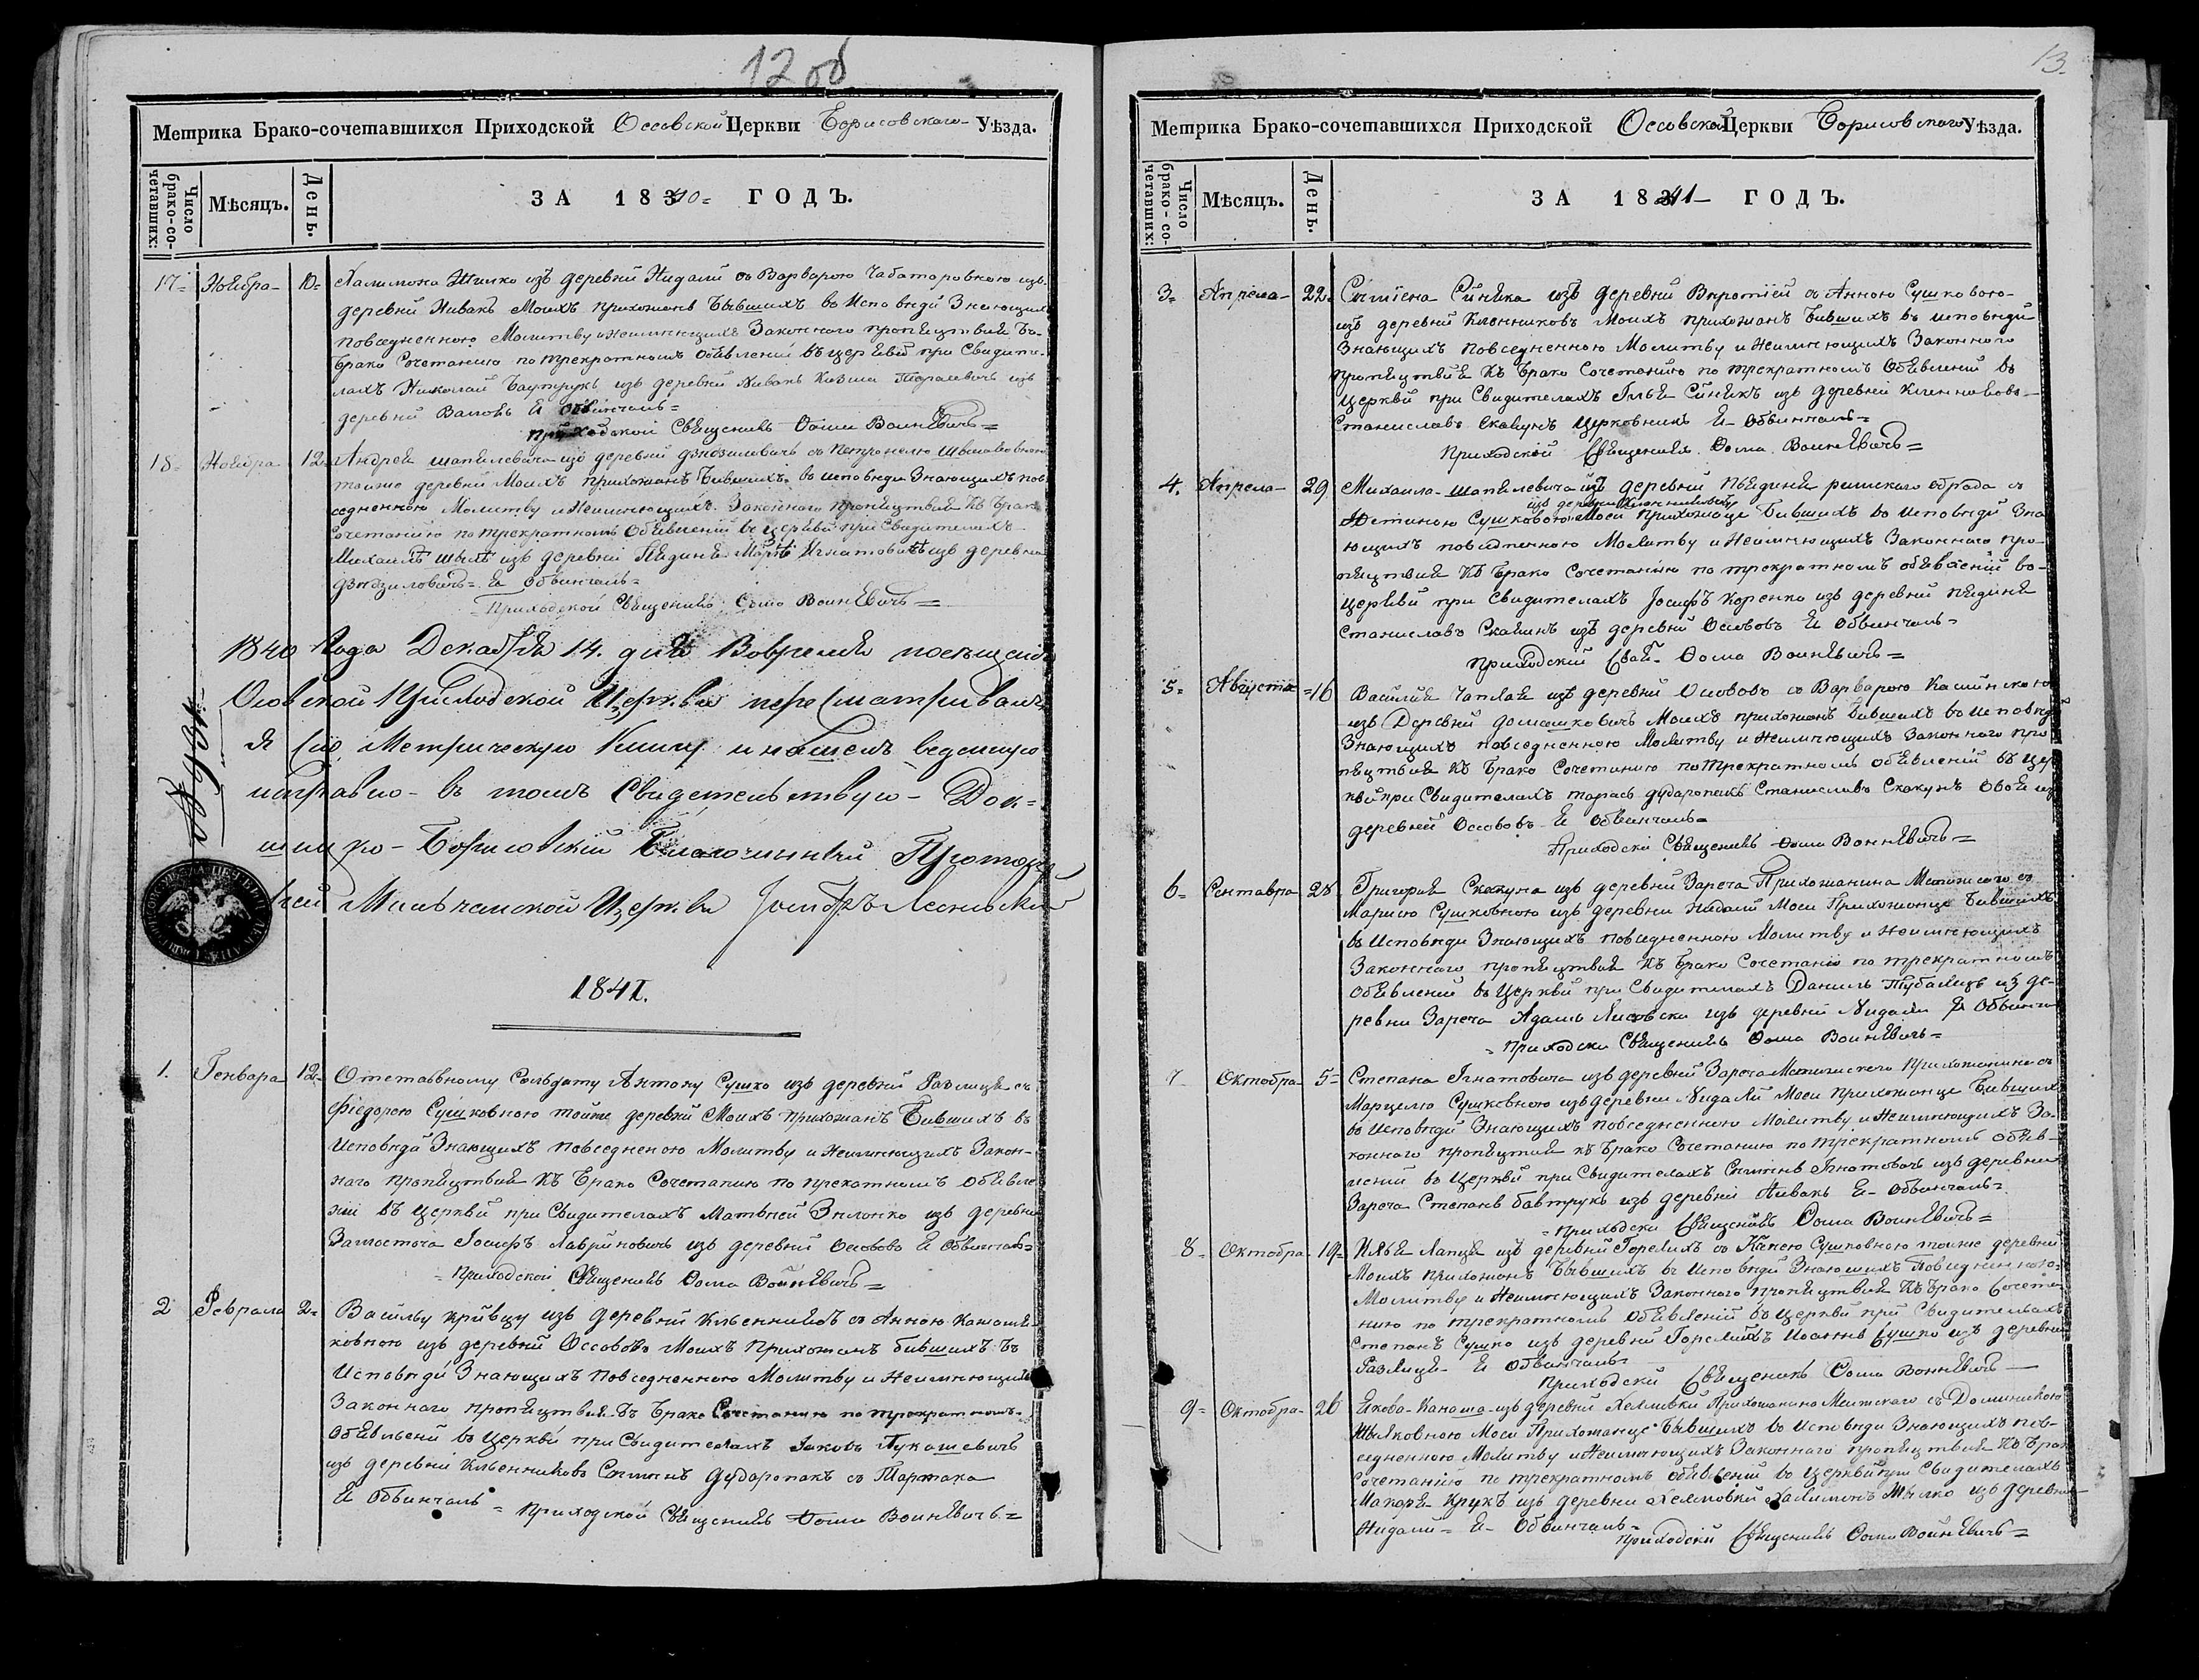 12 об
Метрика Брако-сочетавшихся Приходской Оссовской Церкви Борисовского Уѣзда.
Число брако-со-четавших:
Мѣсяцъ.
День.
ЗА 1840 ГОДЪ.
17 Ноября 10 Халимона Жилко изъ деревни Нидали съ Варварою Чабатаровною изъ
деревни Нивакъ Моихъ прихожанъ бывшихъ во Исповѣди Знающихъ
повседненною Молитву и Неимѣющихъ Законнаго препятствия къ
Брако Сочетанию по трекратномъ Объявлении въ церквѣ при Свидите-
лахъ Николай Бавтрукъ изъ деревни Нивакъ Казима изъ
деревни Я Обвинчалъ
приходской Священникъ Фома Воиневичъ
18 Ноября 12 Андрея Шапелевича изъ деревни съ Петронелю
тойже деревни Моихъ прихожанъ бившихъ во исповѣди Знающихъ пов-
седненною Молитву и Неимѣющихъ Законнаго препятствия къ Брако
Сочетанию по трекратномъ Объявлении въ церквѣ при Свидителахъ
Михаилъ изъ деревни Пядинѣ Игнатовичъ изъ деревни
Я Обвинчалъ
Приходской Священникъ Фома Воиневичъ
1840 Года Декабря 14. дня Вовремя посѣщения
Осовской Приходской Церкви пересматривалъ
я сию Метрическую Книгу и нашелъ веденную
исправно в томъ Свидетельствую Док-
шицко-Борисовский Благочинный Протоие-
рей Мильчанской Церкви Іосифъ
1841.
1. Генвара 12 Отетавному Солдату Антону Сушко изъ деревни Разлице съ
Фiедорою Сушковною тойже деревни Моихъ прихожанъ Бившихъ въ
Исповѣди Знающихъ повседненою Молитву и Неимѣющихъ Закон-
наго препятствия къ Брако Сочетанию по трекатномъ Объявле-
нии въ церквѣ при Свидителахъ Матвией Зилонко изъ деревни
Замосточа Іосифъ Лавриновичъ изъ деревни Осовова Я Обвинчалъ
приходской Священникъ Фома Воиневичъ
2 Февраля 2 Василью Кривцу изъ деревни Кленниковъ съ Анною
ковною изъ деревни Оссововъ Моихъ Прихожанъ бившихъ въ
Исповѣди Знающихъ Повседненного Молитву и Неимѣющихъ
Законнаго препятствия къ Брако Сочетанию по трекратномъ
Объявлении во Церквѣ при Свидителахъ Іаковъ Лукашевичъ
изъ деревни Кленниковъ Сымонъ Дударонакъ съ Тартака
Я Обвинчалъ приходской Священникъ Фома Воиневичъ
13.
Метрика Брако-сочетавшихся Приходской Оссовской Церкви Борисовского Уѣзда.
Число брако-со-четавших:
Мѣсяцъ.
День.
ЗА 1841 ГОДЪ.
3 Апреля 22 Сымiена Синяка изъ деревни съ Анною Сушковою
изъ деревни Кленниковъ Моихъ прихожанъ бившихъ въ исповѣди
Знающихъ повседненною Молитву и Неимѣющихъ Законнаго
препятствия къ Брако Сочетанию по трекратномъ Объявлении въ
Церквѣ при Свидителахъ Ілья Синякъ изъ деревни Кленникова
Станиславъ Скакунъ Церковникъ Я Обвинчалъ
Приходский Священникъ Фома Воиневичъ
4. Апреля 29 Михаила Шапелевича изъ деревни Пядинѣ римского обрада съ
изъ деревни Кленниковъ
Юстиною Сушковою Моей прихожанце бившихъ во исповѣди Зна-
ющихъ повседненною Молитву и Неимѣющихъ Законнаго пре-
пятствия къ Брако Сочетанию по трекратномъ объявлении во-
церквѣ при Свидителахъ Іосифъ Коренко изъ деревни Пядинѣ
Станиславъ Скакунъ изъ деревни Осововъ Я Обвинчалъ
приходский Фома Воиневичъ
5 Августа 16 Василия Чаплая изъ деревни Осововъ съ Варварою
изъ Деревни Домашковичъ Моихъ прихожанъ бившихъ во исповѣди
Знающихъ повседненною Молитву и Неимѣющихъ Законнаго пре-
пятствия къ Брако Сочетанию по трекратномъ объявлении въ цер-
квѣ при Свидителахъ Тарасъ Дударонакъ Станиславъ Скакунъ Обои изъ
деревни Оссововъ Я Обвинчалъ
Приходски Священникъ Фома Воиневичъ
6 Сентавра 28 Григория Скакуна изъ деревни Зареча Прихожанина съ
Марисю Сушковною изъ деревни Нидали Моей Прихожанце бившихъ
въ Исповѣди Знающихъ повседненною Молитву и Неимѣющихъ
Законнаго препятствия къ Брако Сочетанию по трекратномъ
Объявлении въ Церквѣ при Свидителахъ Даниль изъ де-
ревни Зареча Адамъ изъ деревни Нидали Я Обвинчалъ
Приходски Священникъ Фома Воиневичъ
7 Октобра 5 Степана Ігнатовича изъ деревни Зареча Прихожанина съ
Марцелю Сушковною изъ деревни Нидали Моей прихожанце бившихъ
во Исповѣди Знающихъ повседненною Молитву и Неимѣющихъ За-
коннаго препятствия къ Брако Сочетанию по трекратномъ объяв-
лении во Церквѣ при Свидителахъ Сымонъ Ігнатовичъ изъ деревни
Зареча Степанъ Бавтрукъ изъ деревни Нивакъ Я Обвинчалъ
приходски Священникъ Фома Воиневичъ
8 Октобра 19 Илья Лапця изъ деревни Горелихъ съ Сушковною тойже деревни
Моихъ прихожанъ бывшихъ въ Исповѣди Знающихъ повседненною
Молитву и Неимѣющихъ Законнаго препятствия къ Брако Сочета-
нию по трекратномъ объявлении въ церквѣ при Свидителахъ
Степанъ Сушко изъ деревни Горелихъ Иоаннъ Сушко изъ деревни
Разлице Я Обвинчалъ
приходский Священникъ Фома Воиневичъ
9 Октобра 26 Якова Канаша изъ деревни Хелмовки Прихожанина съ Доминикою
Жилковною Моей Прихожанце бывшихъ во Исповѣди Знающихъ пов-
седненного Молитву и Неимѣющихъ Законнаго препятствия къ Брако
Сочетанию по трекратномъ объявлении во церквѣ при Свидителахъ
Макоръ Крукъ изъ деревни Хелмовки Халимонъ Жилко изъ деревни
Нидали Я Обвинчалъ
приходский Священникъ Фома Воиневичъ